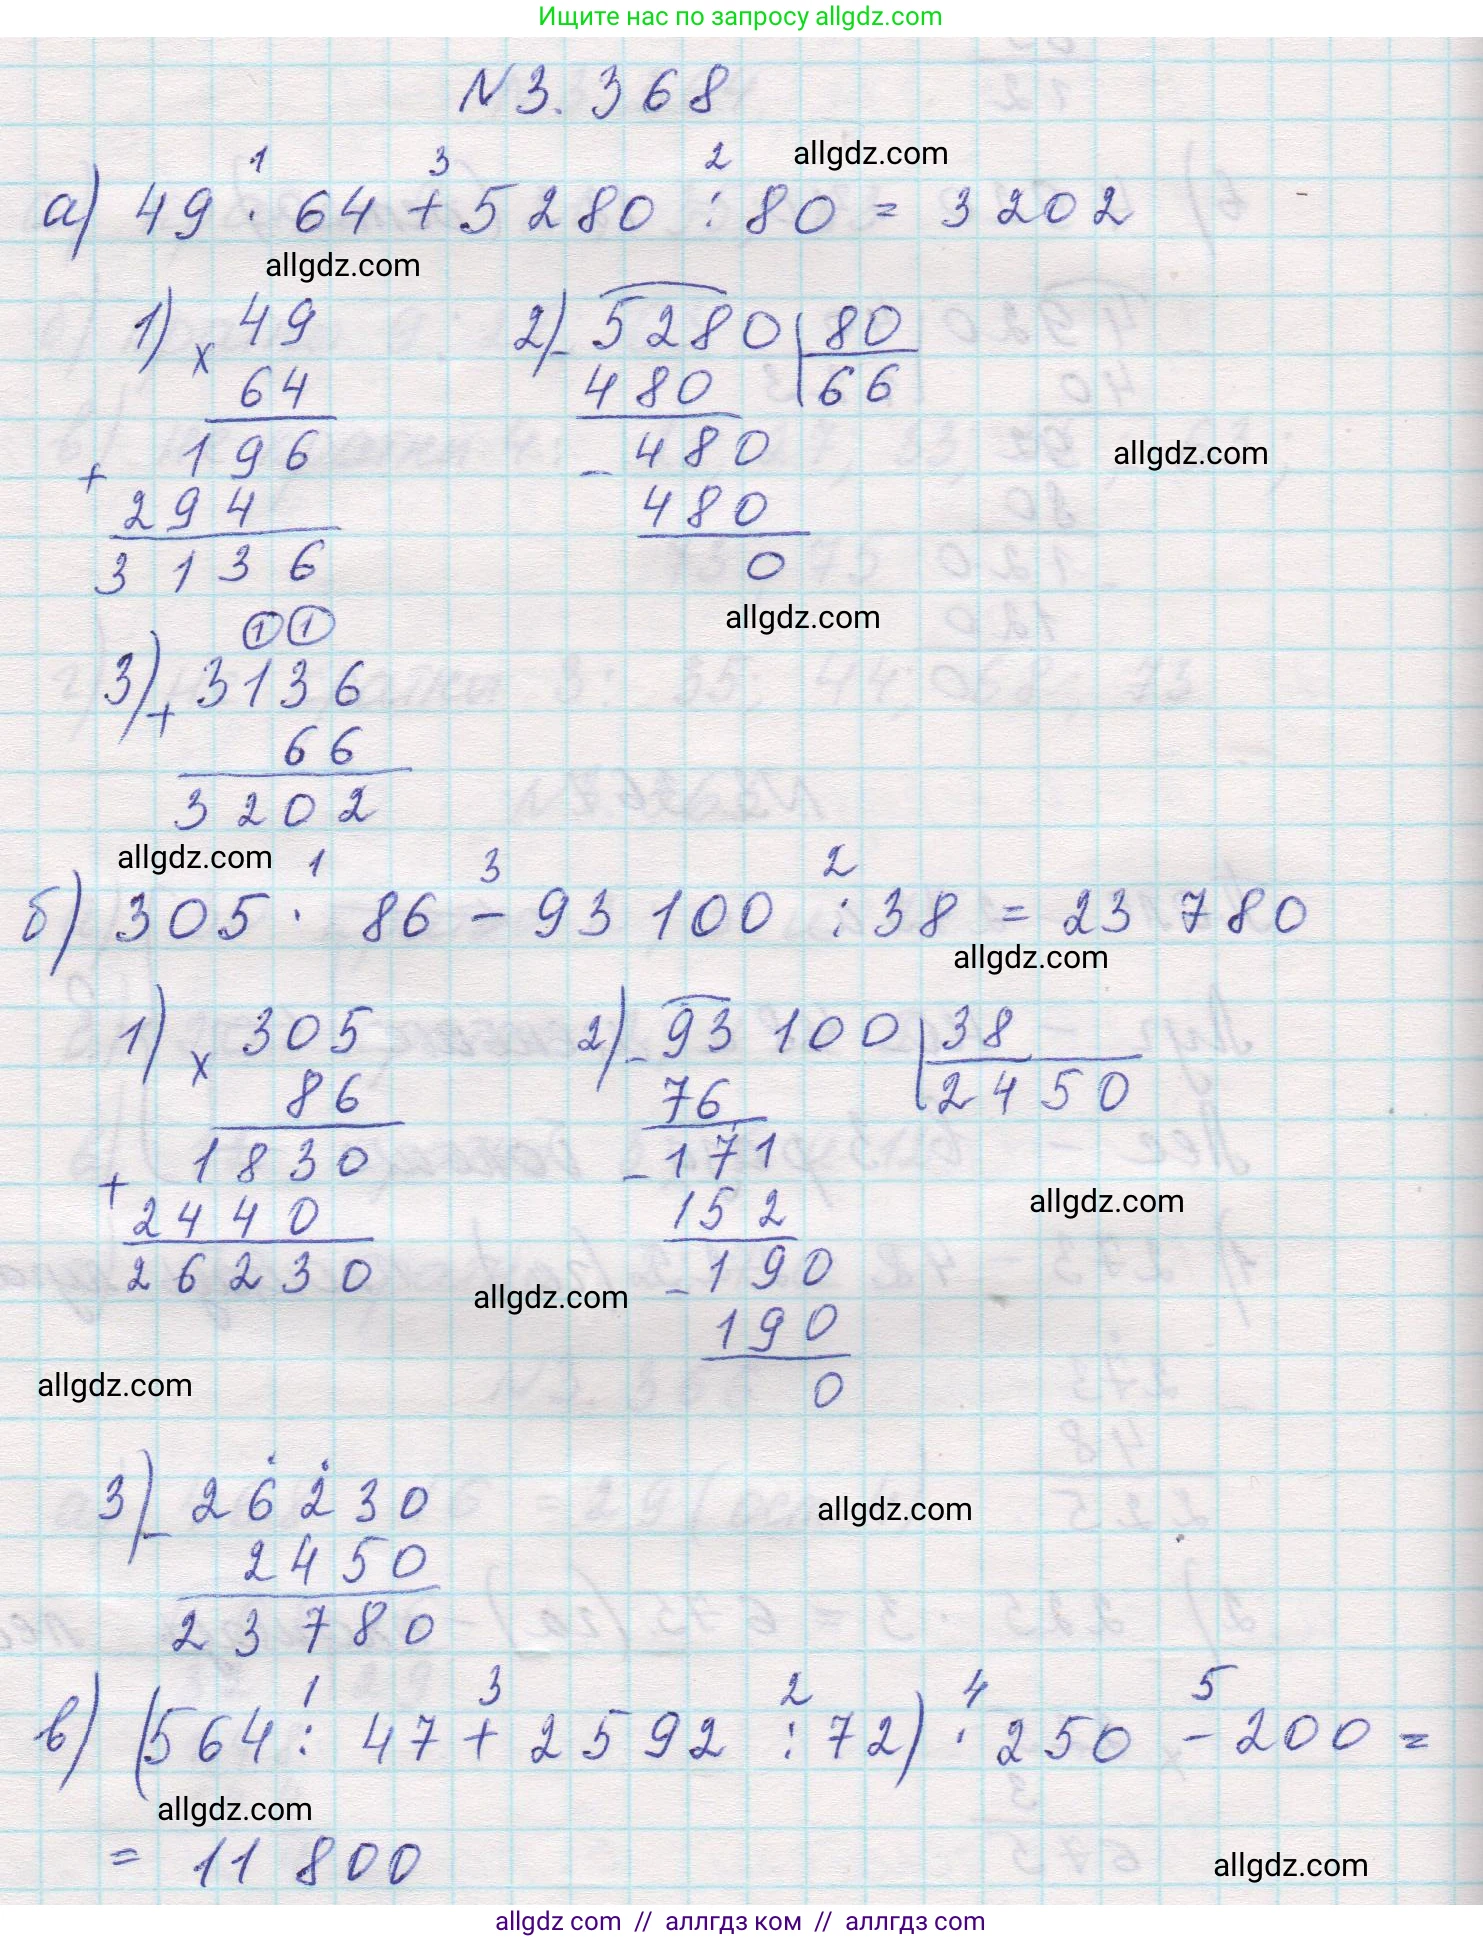 Ищите нас по запросу allgdz.com
N 3. 368
1 3 2 allgdz.com
а) 49 · 64 + 5280 : 80 = 3202
allgdz.com
1) 49 2) 5280 80
× 64 - 480 66
196 - 480 allgdz.com
+ 294 480
3136 0
1 1 allgdz.com
3) + 3136
66
3202
allgdz.com 1 3 2
б) 305 · 86 - 93 100 : 38 = 23 780
allgdz.com
1) × 305 2) - 93 100 38
86 76 2450
1830 - 171
+ 2440 152 allgdz.com
26230 - 190
allgdz.com 190
allgdz.com 0
3) - 26230 allgdz.com
2450
23780
1 3 2 4 5
в) (564 : 47 + 2592 : 72) · 250 - 200 =
allgdz.com
= 11 800 allgdz.com
allgdz com // аллгдз ком // аллгдз com